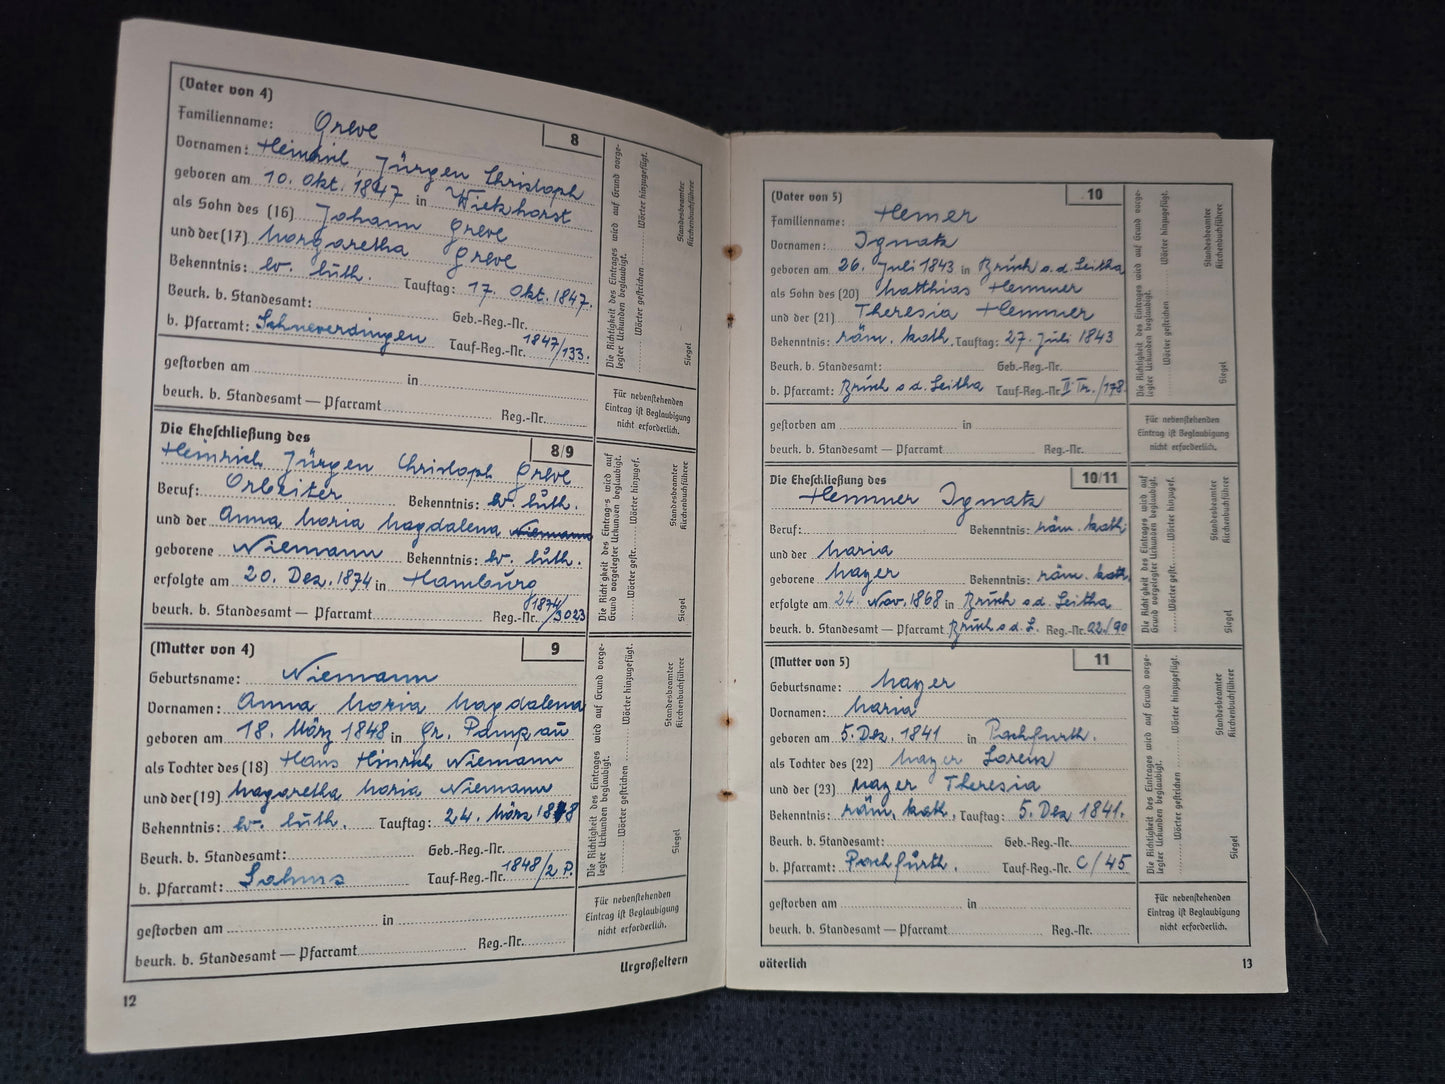 (Vater von 4)
8
Familienname: Greve
Vornamen: Heinrich Jürgen Christoph
geboren am 10. Okt. 1847 in Wiekhorst
als Sohn des (16) Johann Greve
und der (17) Margaretha Greve
Bekenntnis: ev. luth. Tauftag: 17. Okt. 1847.
Beurk. b. Standesamt: Geb.-Reg.-Nr.
b. Pfarramt: Schneverdingen Tauf-Reg.-Nr. 1847/133.
gestorben am in
beurk. b. Standesamt — Pfarramt Reg.-Nr.
Die Richtigkeit des Eintrages wird auf Grund vorge-
legter Urkunden beglaubigt.
Wörter gestrichen Wörter hinzugefügt.
Siegel
Standesbeamter
Kirchenbuchführer
Für nebenstehenden
Eintrag ist Beglaubigung
nicht erforderlich.
Die Eheschließung des
8/9
Heinrich Jürgen Christoph Greve
Beruf: Arbeiter Bekenntnis: ev. luth.
und der Anna Maria Magdalena Niemann
geborene Niemann Bekenntnis: ev. luth.
erfolgte am 20. Dez. 1874 in Hamburg
beurk. b. Standesamt — Pfarramt Reg.-Nr. 1874/3023
Die Richtigkeit des Eintrag-s wird auf
Grund vorgelegter Urkunden beglaubigt.
Wörter gestr. Wörter hinzugef.
Siegel
Standesbeamter
Kirchenbuchführer
(Mutter von 4)
9
Geburtsname: Niemann
Vornamen: Anna Maria Magdalena
geboren am 18. März 1848 in Gr. Pampau
als Tochter des (18) Hans Hinrich Niemann
und der (19) Magaretha Maria Niemann
Bekenntnis: ev. luth. Tauftag: 24. März 1848
Beurk. b. Standesamt: Geb.-Reg.-Nr.
b. Pfarramt: Sahms Tauf-Reg.-Nr. 1848/2 P.
gestorben am in
beurk. b. Standesamt — Pfarramt Reg.-Nr.
Die Richtigkeit des Eintrages wird auf Grund vorge-
legter Urkunden beglaubigt.
Wörter gestrichen Wörter hinzugefügt.
Siegel
Standesbeamter
Kirchenbuchführer
Für nebenstehenden
Eintrag ist Beglaubigung
nicht erforderlich.
Urgroßeltern
12
(Vater von 5)
10
Familienname: Hemer
Vornamen: Ignatz
geboren am 26. Juli 1843 in Bruck a. d. Leitha
als Sohn des (20) Matthias Hemmer
und der (21) Theresia Hemmer
Bekenntnis: röm. kath. Tauftag: 27. Juli 1843
Beurk. b. Standesamt: Geb.-Reg.-Nr.
b. Pfarramt: Bruck a d. Leitha Tauf-Reg.-Nr. II Tr./178.
gestorben am in
beurk. b. Standesamt — Pfarramt Reg.-Nr.
Die Richtigkeit des Eintrages wird auf Grund vorge-
legter Urkunden beglaubigt.
Wörter gestrichen Wörter hinzugefügt.
Siegel
Standesbeamter
Kirchenbuchführer
Für nebenstehenden
Eintrag ist Beglaubigung
nicht erforderlich.
Die Eheschließung des
10/11
Hemmer Ignatz
Beruf: Bekenntnis: röm. kath.
und der Maria
geborene Mayer Bekenntnis: röm. kath.
erfolgte am 24. Nov. 1868 in Bruck a d. Leitha
beurk. b. Standesamt — Pfarramt Bruck a d. L. Reg.-Nr. 02./90
Die Richtigkeit des Eintrages wird auf
Grund vorgelegter Urkunden beglaubigt.
Wörter gestr. Wörter hinzugef.
Siegel
Standesbeamter
Kirchenbuchführer
(Mutter von 5)
11
Geburtsname: Mayer
Vornamen: Maria
geboren am 5. Dez. 1841 in Pachfurth.
als Tochter des (22) Mayer Lorenz
und der (23) Mayer Theresia
Bekenntnis: röm. kath. Tauftag: 5. Dez 1841.
Beurk. b. Standesamt: Geb.-Reg.-Nr.
b. Pfarramt: Pachfurth. Tauf-Reg.-Nr. C/45
gestorben am in
beurk. b. Standesamt — Pfarramt Reg.-Nr.
Die Richtigkeit des Eintrages wird auf Grund vorge-
legter Urkunden beglaubigt.
Wörter gestrichen Wörter hinzugefügt.
Siegel
Standesbeamter
Kirchenbuchführer
Für nebenstehenden
Eintrag ist Beglaubigung
nicht erforderlich.
väterlich
13